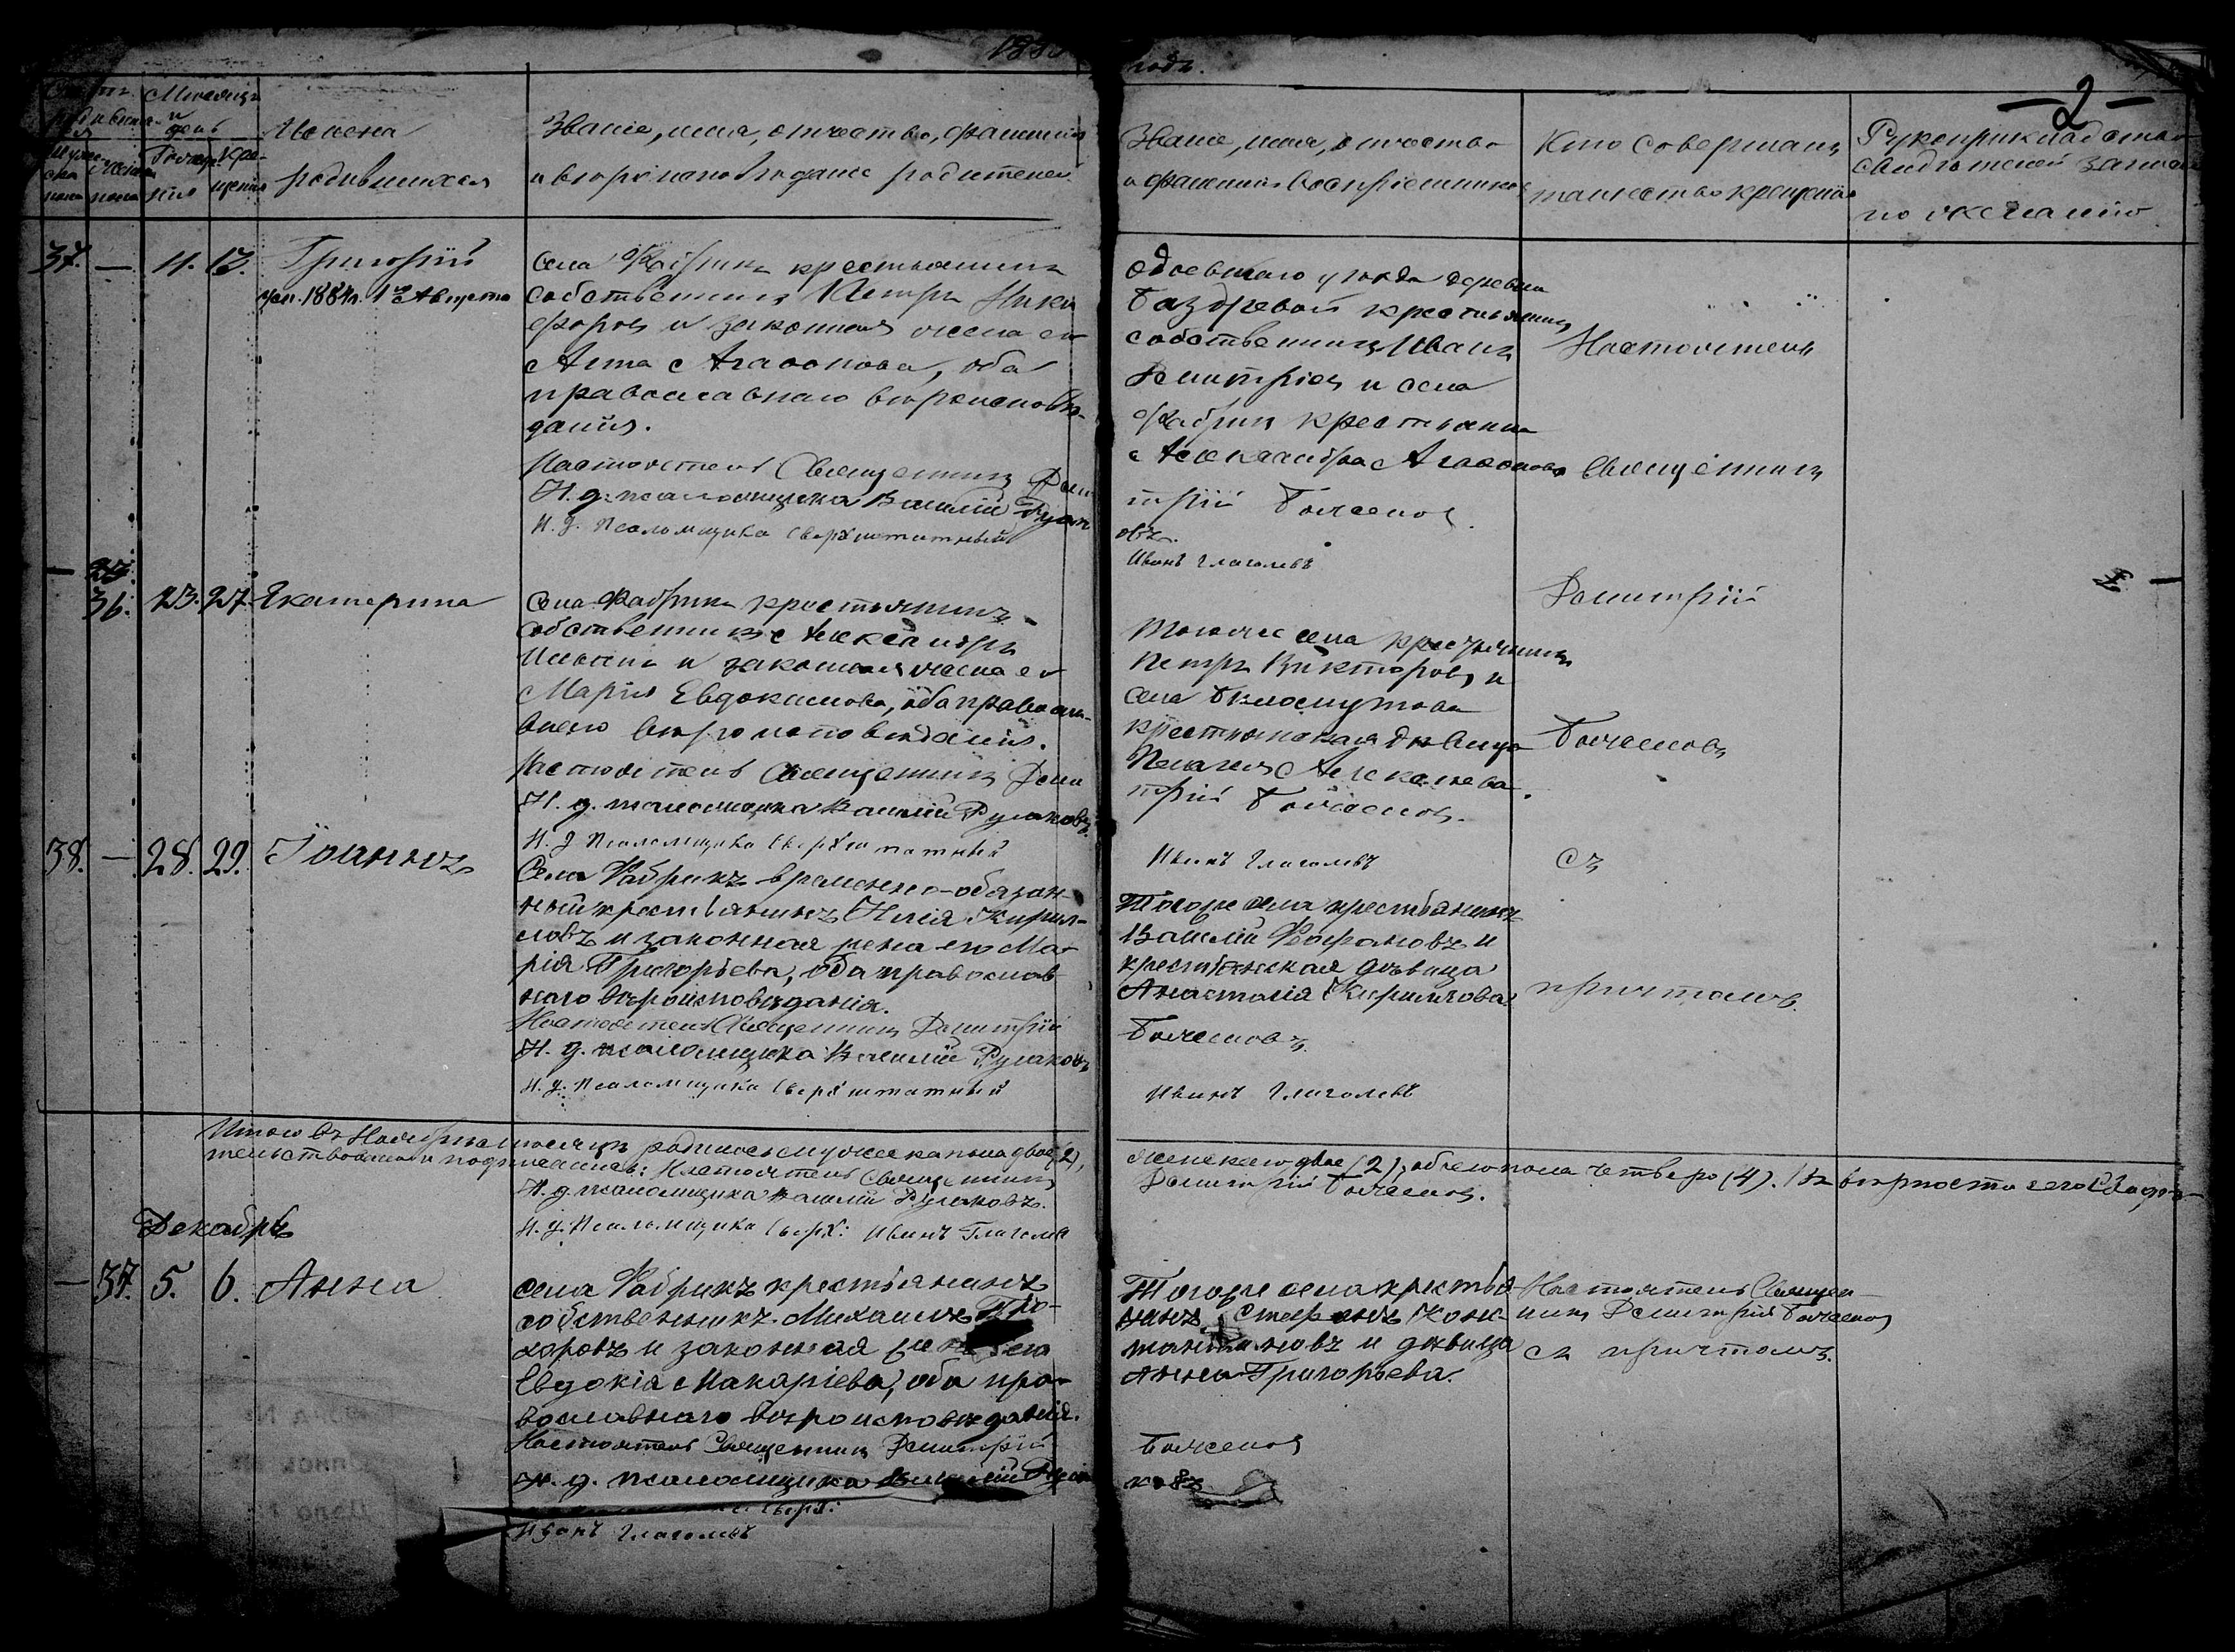 года.
2
Счетъ родившихся
Мужеска пола
Женска пола
Месяцъ и день
Рождения
Крещения
Имена
родившихся
Званіе, имя, отчество, фамилія
и вероисповеданіе родителей
Званіе, имя, отчество
и фамилія воспріемниковъ
Кто совершалъ
таинство крещенія
Рукоприкладство
свидетелей записи
по желанію
37. — 11. 13. Григорій
ум. 1884 г. Августа
Села Фабрикъ крестьянинъ
собственникъ Петръ Ники
форовъ и законная жена его
Анна Агафонова, оба
православнаго вероисповѣ-
данія.
Настоятель Священникъ Дми
И. д. псаломщика Василій Рудак
И. д. Псаломщика Сверхштатный
Одоевскаго уезда деревни
крестьянинъ
собственникъ Иванъ
Димитріевъ и села
Фабрикъ крестьянка
Александра Агафонова
трій Боженовъ.
овъ.
Иванъ Глаголевъ
Настоятель
Священникъ
Димитрій
Боженовъ
съ
причтомъ.
— 36. 23. 27. Екатерина
Села Фабрикъ крестьянинъ
собственникъ Александръ
Ильинъ и законная жена его
Марія Евдокимова, оба правосла-
внаго вероисповеданія.
Настоятель Священникъ Дми
И. д. псаломщика Василій Рудаковъ.
И. д. Псаломщика Сверхштатный
Тогоже села крестьянинъ
Петръ Викторовъ и
села
крестьянская девица
Пелагея Алексеева.
трій Боженовъ.
Иванъ Глаголевъ
38. — 28. 29. Іоаннъ
Села Фабрикъ временно-обязан-
ный крестьянинъ Илія Кирил-
ловъ и законная жена его Ма-
рія Григорьева, оба православ
наго вѣроисповѣданія.
Настоятель Священникъ Димитрій
И. д. псаломщика Василій Рудаковъ
И. д. Псаломщика Сверхштатный
Тогоже села крестьянинъ
Василій и
крестьянская дѣвица
Анастасія Кириллова.
Боженовъ.
Иванъ Глаголевъ
Итого въ Ноябрѣ месяцѣ родилось мужеска пола двое (2),
женскаго двое (2), обоего пола четверо (4). Въ верности сего свидѣ-
тельствовали и подписались: Настоятель Священникъ
Димитрій Боженовъ.
И. д. псаломщика Василій Рудаковъ.
И. д. Псаломщика Сверх: Иванъ Глаголевъ
Декабрь
— 37. 5. 6. Анна
Села Фабрикъ крестьянинъ
собственникъ Михаилъ Про-
хоровъ и законная жена его
Евдокія Макаріева, оба пра-
вославнаго вѣроисповѣданія.
Настоятель Священникъ Димитрій
И. д. псаломщика Василій Рудa
Сверх:
Иванъ Глаголевъ
Тогоже села крестья-
нинъ Стефанъ Конс-
тантиновъ и дѣвица
Анна Григорьева.
Боженовъ
ковъ
Настоятель Священ-
никъ Димитрій Боженовъ
съ причтомъ.